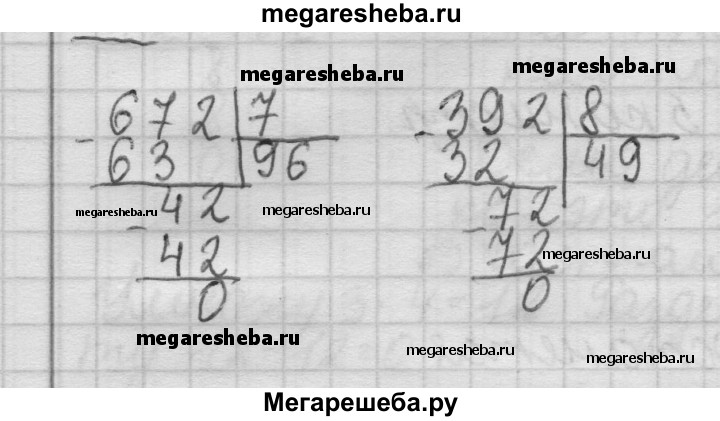 megaresheba.ru
megaresheba.ru megaresheba.ru
- 672 | 7 - 392 | 8
63 96 32 49
megaresheba.ru - 42 megaresheba.ru - 72
42 72 megaresheba.ru
0 0
megaresheba.ru megaresheba.ru megaresheba.ru
Мегарешеба.ру